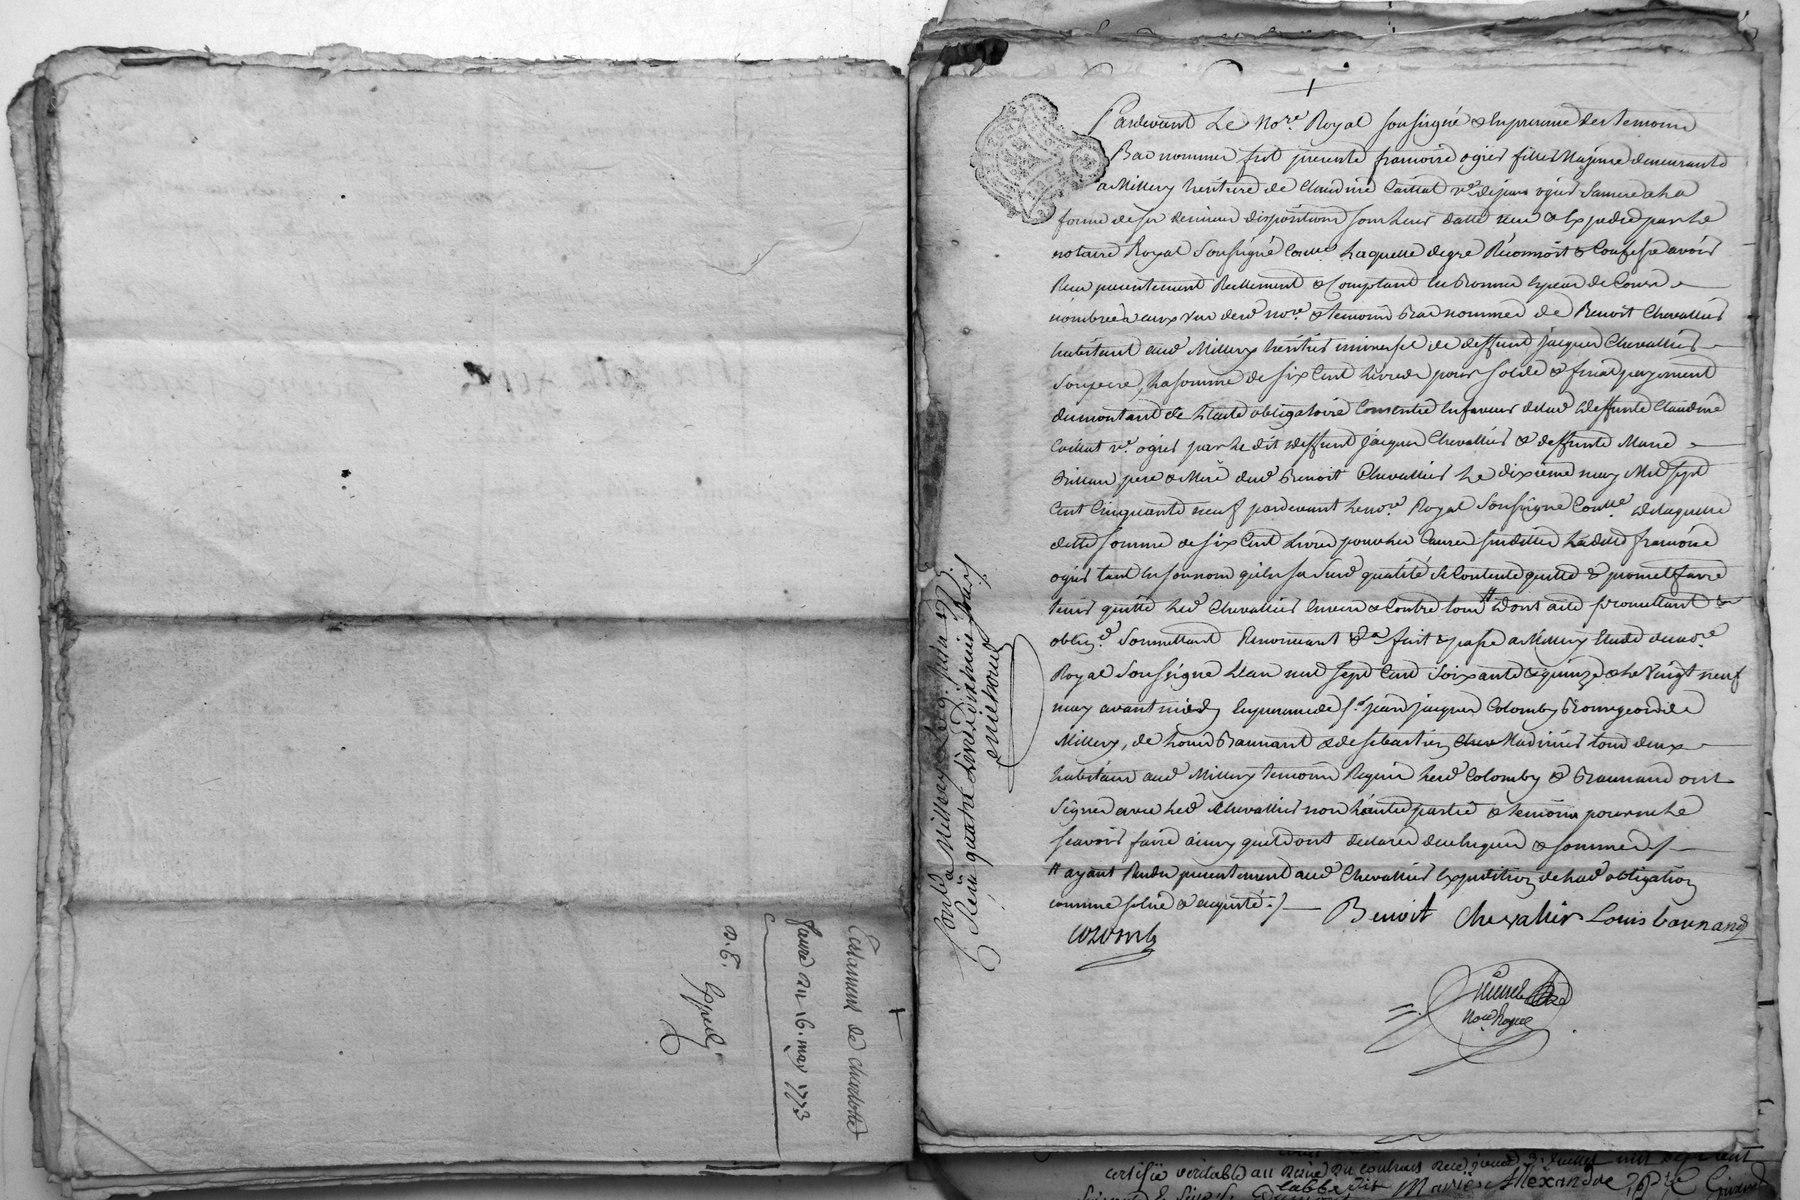 Testament de charlotte
faure du 16. may 1773
a. E. Expedié
Pardevant Le No.re Royal soussigné & En presence des temoins
Bas nommes fut presente francoise ogier fille Majeure demeurante
a Millery heritiere de Claudine Caillat v.e de jean ogier sa mere a la
forme de ses dernieres dispositions sous leur datte reçu & Expedié par le
notaire Royal soussigné laquelle de gré Reconnoit & Confesse avoir
Reçu presentement Reellement & Comptant En Bonnes Especes de Cours
nombrées aux vu de nore & temoins Bas nommes de Benoit Chevallier
habitant aud Millery heritier universel de deffunt jacques Chevallier
son pere, la somme de six Cent livres pour solde & final payement
du montant de L'acte obligatoire Consentie En faveur de lad deffunte Claudine
Caillat v.e ogier par le dit deffunt jacques Chevallier & deffunte Marie
pere & Mere dud Benoit Chevallier le dixieme may Mil sept
Cent Cinquante neuf pardevant le no.re Royal soussigné de laquelle
ditte somme de six Cent livres pour les Causes susdittes laditte francoise
ogier tant En son nom qu'En sa susd qualité se Contente quitte & promet faire
tenir quitte led Chevallier Envers & Contre tous # dont acte promettant
oblig.t soumettant Renonçant &.a fait & passé a Millery Etude du no.re
Royal soussigné L'an mil sept Cent soixante & quinze & le vingt neuf
may avant midy En presence de s.r jean jacques Colomby Bourgeois de
Millery, de Louis Bannand & de sebastien tous deux
habitans aud Millery temoins Requis lesd Colomby & Bannand ont
signé avec led Chevallier non L'autre partie & temoin pour ne le
scavoir faire ainsy qu'ils ont declaré de ce Enquis & sommés /
# ayant Rendu presentement aud Chevallier Expedition de lad obligation
comme solue & acquitté ./.
Benoit chevalier Louis bannand
colomby
no.re Royal
Contlé a Millery Le 9. juin 1775
Reçu quatre livres dix huit sous
certifié veritable au desir du contract reçu
Marie Alexandre